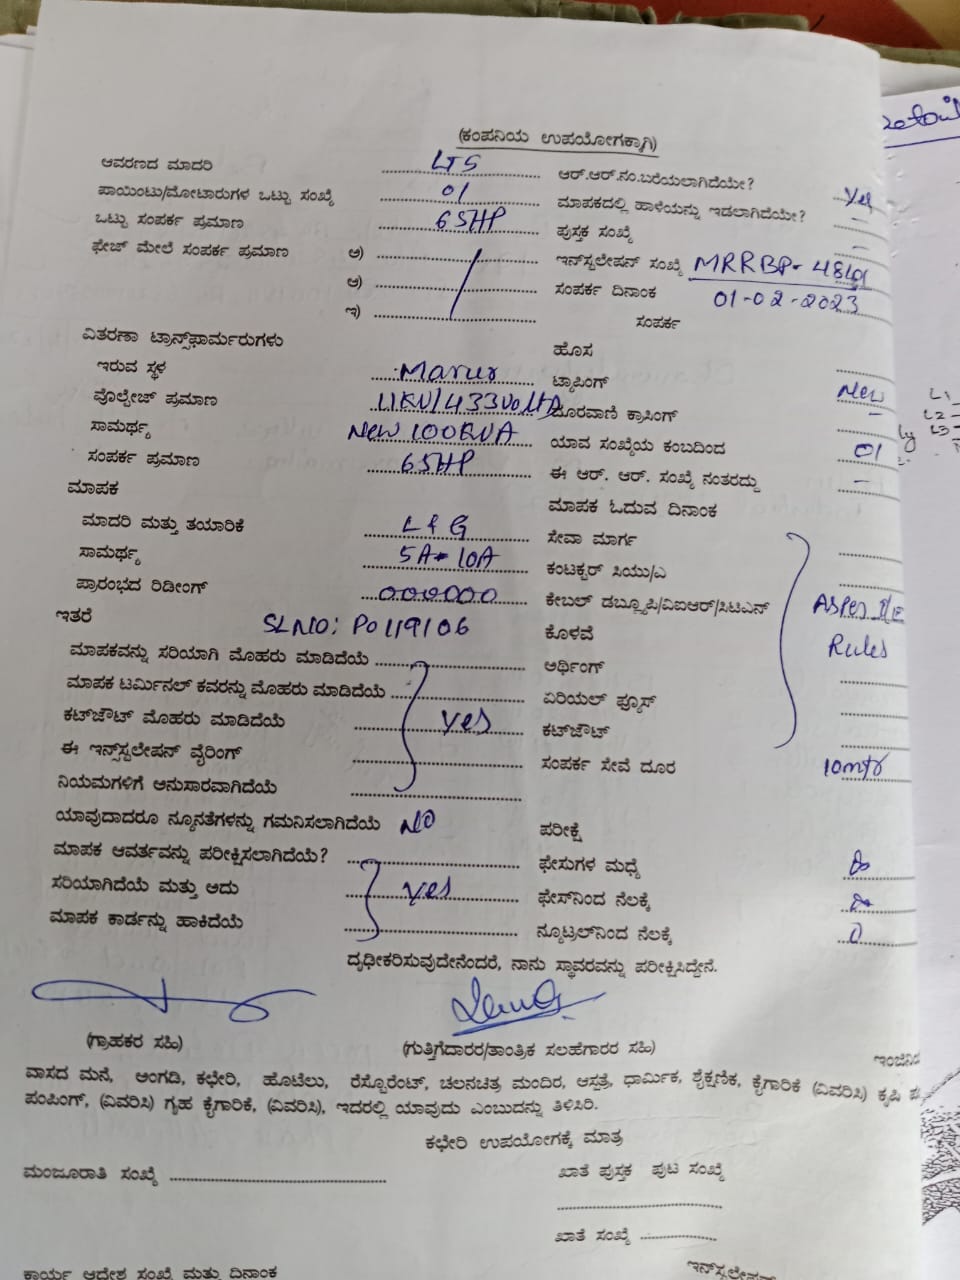 (ಕಂಪನಿಯ ಉಪಯೋಗಕ್ಕಾಗಿ)
ಆವರಣದ ಮಾದರಿ LT5 ಆರ್.ಆರ್.ನಂ.ಬರೆಯಲಾಗಿದೆಯೇ? Yes
ಪಾಯಿಂಟು/ಮೋಟಾರುಗಳ ಒಟ್ಟು ಸಂಖ್ಯೆ 01 ಮಾಪಕದಲ್ಲಿ ಹಾಳೆಯನ್ನು ಇಡಲಾಗಿದೆಯೇ? –
ಒಟ್ಟು ಸಂಪರ್ಕ ಪ್ರಮಾಣ 65HP ಪುಸ್ತಕ ಸಂಖ್ಯೆ –
ಫೇಜ್ ಮೇಲೆ ಸಂಪರ್ಕ ಪ್ರಮಾಣ ಅ) ಇನ್‌ಸ್ಟಲೇಷನ್ ಸಂಖ್ಯೆ MRRBP-
ಆ) ಸಂಪರ್ಕ ದಿನಾಂಕ 01-02-2023
ಇ) ಸಂಪರ್ಕ
ವಿತರಣಾ ಟ್ರಾನ್ಸ್‌ಫಾರ್ಮರುಗಳು ಹೊಸ
ಇರುವ ಸ್ಥಳ Marur ಟ್ಯಾಪಿಂಗ್ New
ವೊಲ್ಟೇಜ್ ಪ್ರಮಾಣ 11KV/433Volts ದೂರವಾಣಿ ಕ್ರಾಸಿಂಗ್ –
ಸಾಮರ್ಥ್ಯ New 100KVA ಯಾವ ಸಂಖ್ಯೆಯ ಕಂಬದಿಂದ 01
ಸಂಪರ್ಕ ಪ್ರಮಾಣ 65HP ಈ ಆರ್. ಆರ್. ಸಂಖ್ಯೆ ನಂತರದ್ದು –
ಮಾಪಕ ಮಾಪಕ ಓದುವ ದಿನಾಂಕ
ಮಾದರಿ ಮತ್ತು ತಯಾರಿಕೆ L&G ಸೇವಾ ಮಾರ್ಗ
ಸಾಮರ್ಥ್ಯ 5A-10A ಕಂಟಕ್ಟರ್ ಸಿಯು/ಎ
ಪ್ರಾರಂಭದ ರಿಡೀಂಗ್ 000000 ಕೇಬಲ್ ಡಬ್ಲ್ಯೂಪಿ/ವಿಐಆರ್/ಸಿಟಿಎಸ್ As per I/E
ಇತರೆ SLNO: P0119106 ಕೊಳವೆ Rules
ಮಾಪಕವನ್ನು ಸರಿಯಾಗಿ ಮೊಹರು ಮಾಡಿದೆಯೆ ಅರ್ಥಿಂಗ್
ಮಾಪಕ ಟರ್ಮಿನಲ್ ಕವರನ್ನು ಮೊಹರು ಮಾಡಿದೆಯೆ ಏರಿಯಲ್ ಫ್ಯೂಸ್
ಕಟ್‌ಔಟ್ ಮೊಹರು ಮಾಡಿದೆಯೆ yes ಕಟ್‌ಔಟ್
ಈ ಇನ್‌ಸ್ಟಲೇಷನ್ ವೈರಿಂಗ್ ಸಂಪರ್ಕ ಸೇವೆ ದೂರ 10mtr
ನಿಯಮಗಳಿಗೆ ಅನುಸಾರವಾಗಿದೆಯೆ
ಯಾವುದಾದರೂ ನ್ಯೂನತೆಗಳನ್ನು ಗಮನಿಸಲಾಗಿದೆಯೆ NO ಪರೀಕ್ಷೆ
ಮಾಪಕ ಆವರ್ತವನ್ನು ಪರೀಕ್ಷಿಸಲಾಗಿದೆಯೆ? ಫೇಸುಗಳ ಮಧ್ಯೆ
ಸರಿಯಾಗಿದೆಯೆ ಮತ್ತು ಅದು yes ಫೇಸ್‌ನಿಂದ ನೆಲಕ್ಕೆ
ಮಾಪಕ ಕಾರ್ಡನ್ನು ಹಾಕಿದೆಯೆ ನ್ಯೂಟ್ರಲ್‌ನಿಂದ ನೆಲಕ್ಕೆ 0
ದೃಢೀಕರಿಸುವುದೇನೆಂದರೆ, ನಾನು ಸ್ಥಾವರವನ್ನು ಪರೀಕ್ಷಿಸಿದ್ದೇನೆ.
(ಗ್ರಾಹಕರ ಸಹಿ) (ಗುತ್ತಿಗೆದಾರರ/ತಾಂತ್ರಿಕ ಸಲಹೆಗಾರರ ಸಹಿ)
ವಾಸದ ಮನೆ, ಅಂಗಡಿ, ಕಛೇರಿ, ಹೊಟೆಲು, ರೆಸ್ಟೊರೆಂಟ್, ಚಲನಚಿತ್ರ ಮಂದಿರ, ಆಸ್ಪತ್ರೆ, ಧಾರ್ಮಿಕ, ಶೈಕ್ಷಣಿಕ, ಕೈಗಾರಿಕೆ (ವಿವರಿಸಿ) ಕೃಷಿ
ಪಂಪಿಂಗ್, (ವಿವರಿಸಿ) ಗೃಹ ಕೈಗಾರಿಕೆ, (ವಿವರಿಸಿ), ಇದರಲ್ಲಿ ಯಾವುದು ಎಂಬುದನ್ನು ತಿಳಿಸಿರಿ.
ಕಛೇರಿ ಉಪಯೋಗಕ್ಕೆ ಮಾತ್ರ
ಮಂಜೂರಾತಿ ಸಂಖ್ಯೆ ಖಾತೆ ಪುಸ್ತಕ ಪುಟ ಸಂಖ್ಯೆ
ಖಾತೆ ಸಂಖ್ಯೆ
ಕಾರ್ಯ ಆದೇಶ ಸಂಖ್ಯೆ ಮತ್ತು ದಿನಾಂಕ